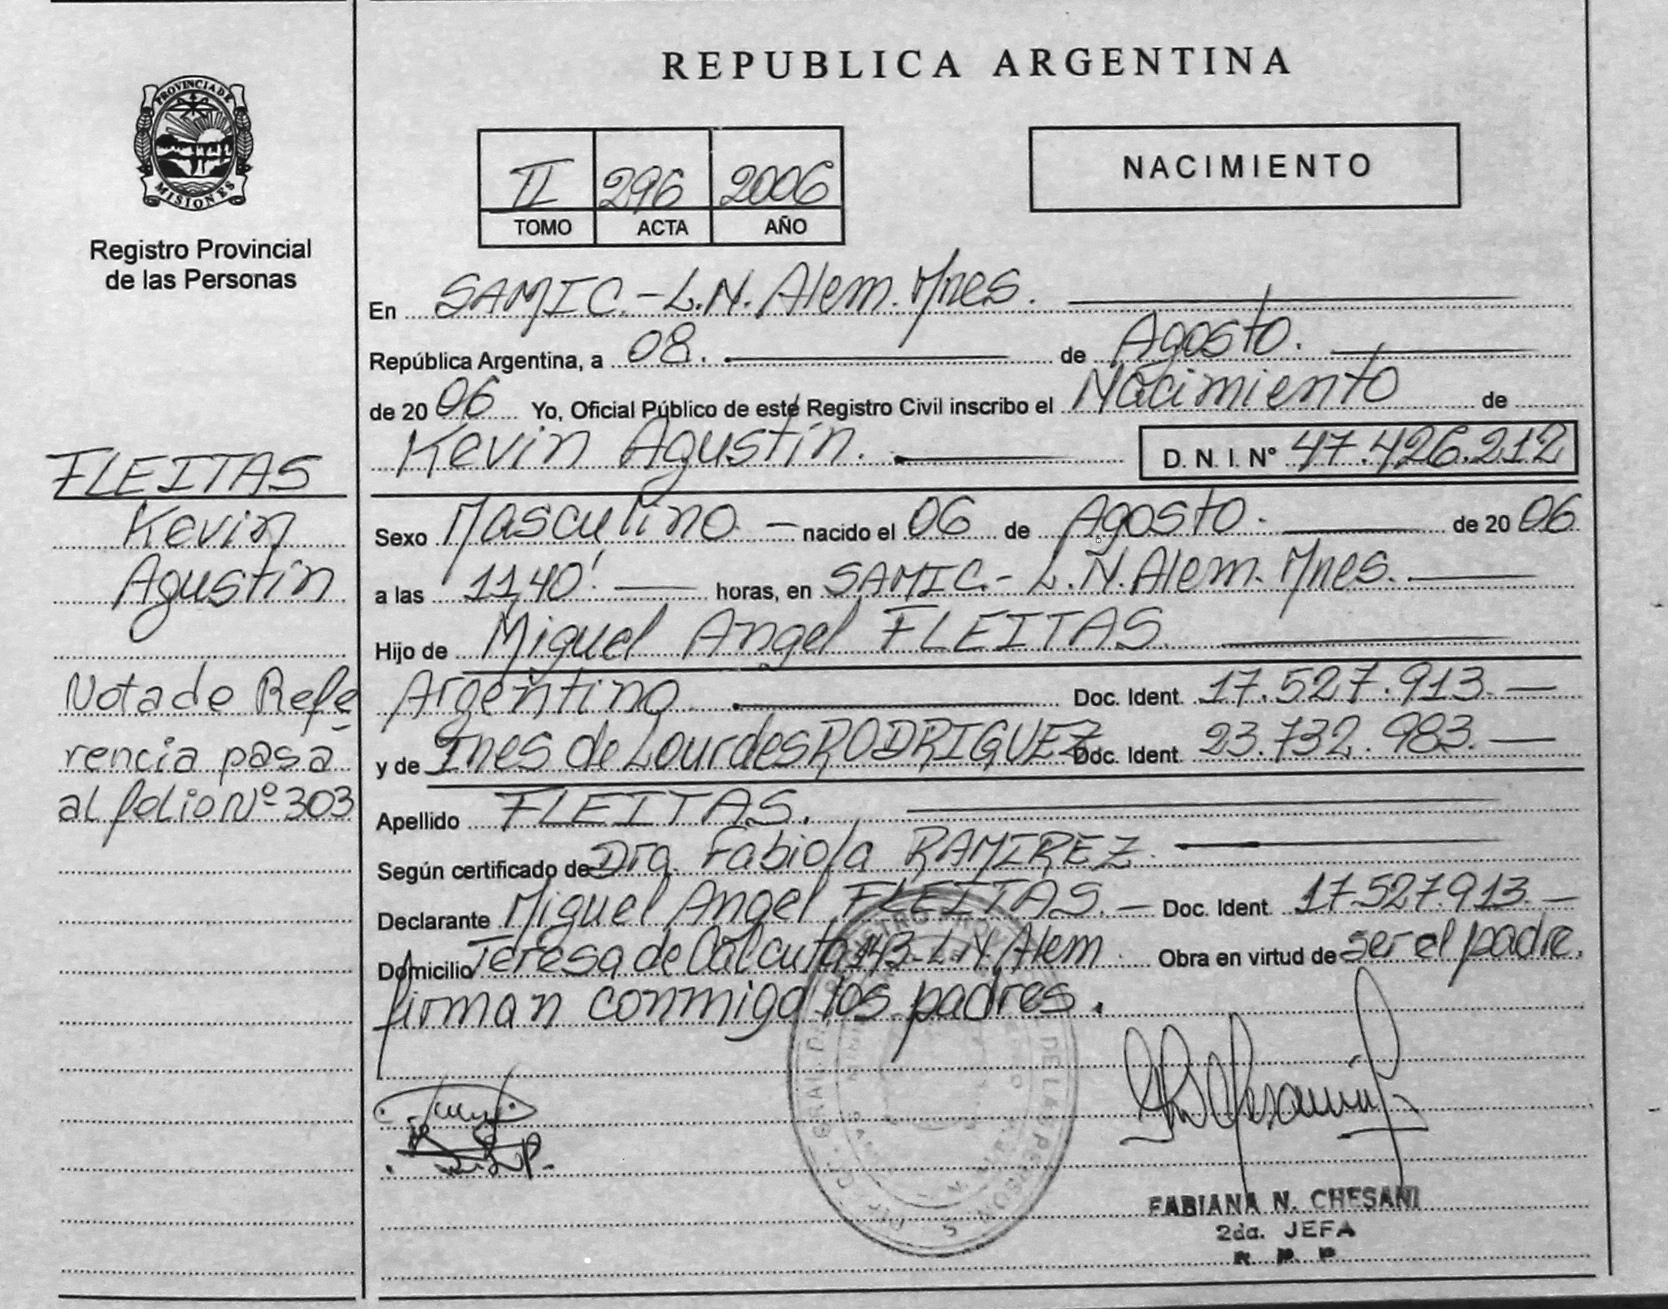 PROVINCIA DE
MISIONES
Registro Provincial
de las Personas
FLEITAS
Kevin
Agustín
Nota de Refe
rencia pasa
al folio Nº 303
REPUBLICA ARGENTINA
II 296 2006
TOMO ACTA AÑO
NACIMIENTO
En SAMIC.-L.N.Alem.Mnes.
República Argentina, a 08. de Agosto.
de 20 06 Yo, Oficial Público de este Registro Civil inscribo el Nacimiento de
Kevin Agustín. D. N. I. Nº 47.426.212
Sexo Masculino nacido el 06 de Agosto. de 20 06
a las 11,40' horas, en SAMIC.- L.N.Alem.Mnes.
Hijo de Miguel Angel FLEITAS.
Argentino Doc. Ident. 17.527.913.
y de Ines de Lourdes RODRIGUEZ Doc. Ident. 23.732.983.
Apellido FLEITAS.
Según certificado de Dra. Fabiola RAMIREZ.
Declarante Miguel Angel FLEITAS. Doc. Ident. 17.527.913.
Domicilio Teresa de Calcuta 143-L.N.Alem. Obra en virtud de ser el padre,
firman conmigo los padres.
FABIANA N. CHESANI
2da. JEFA
R P P